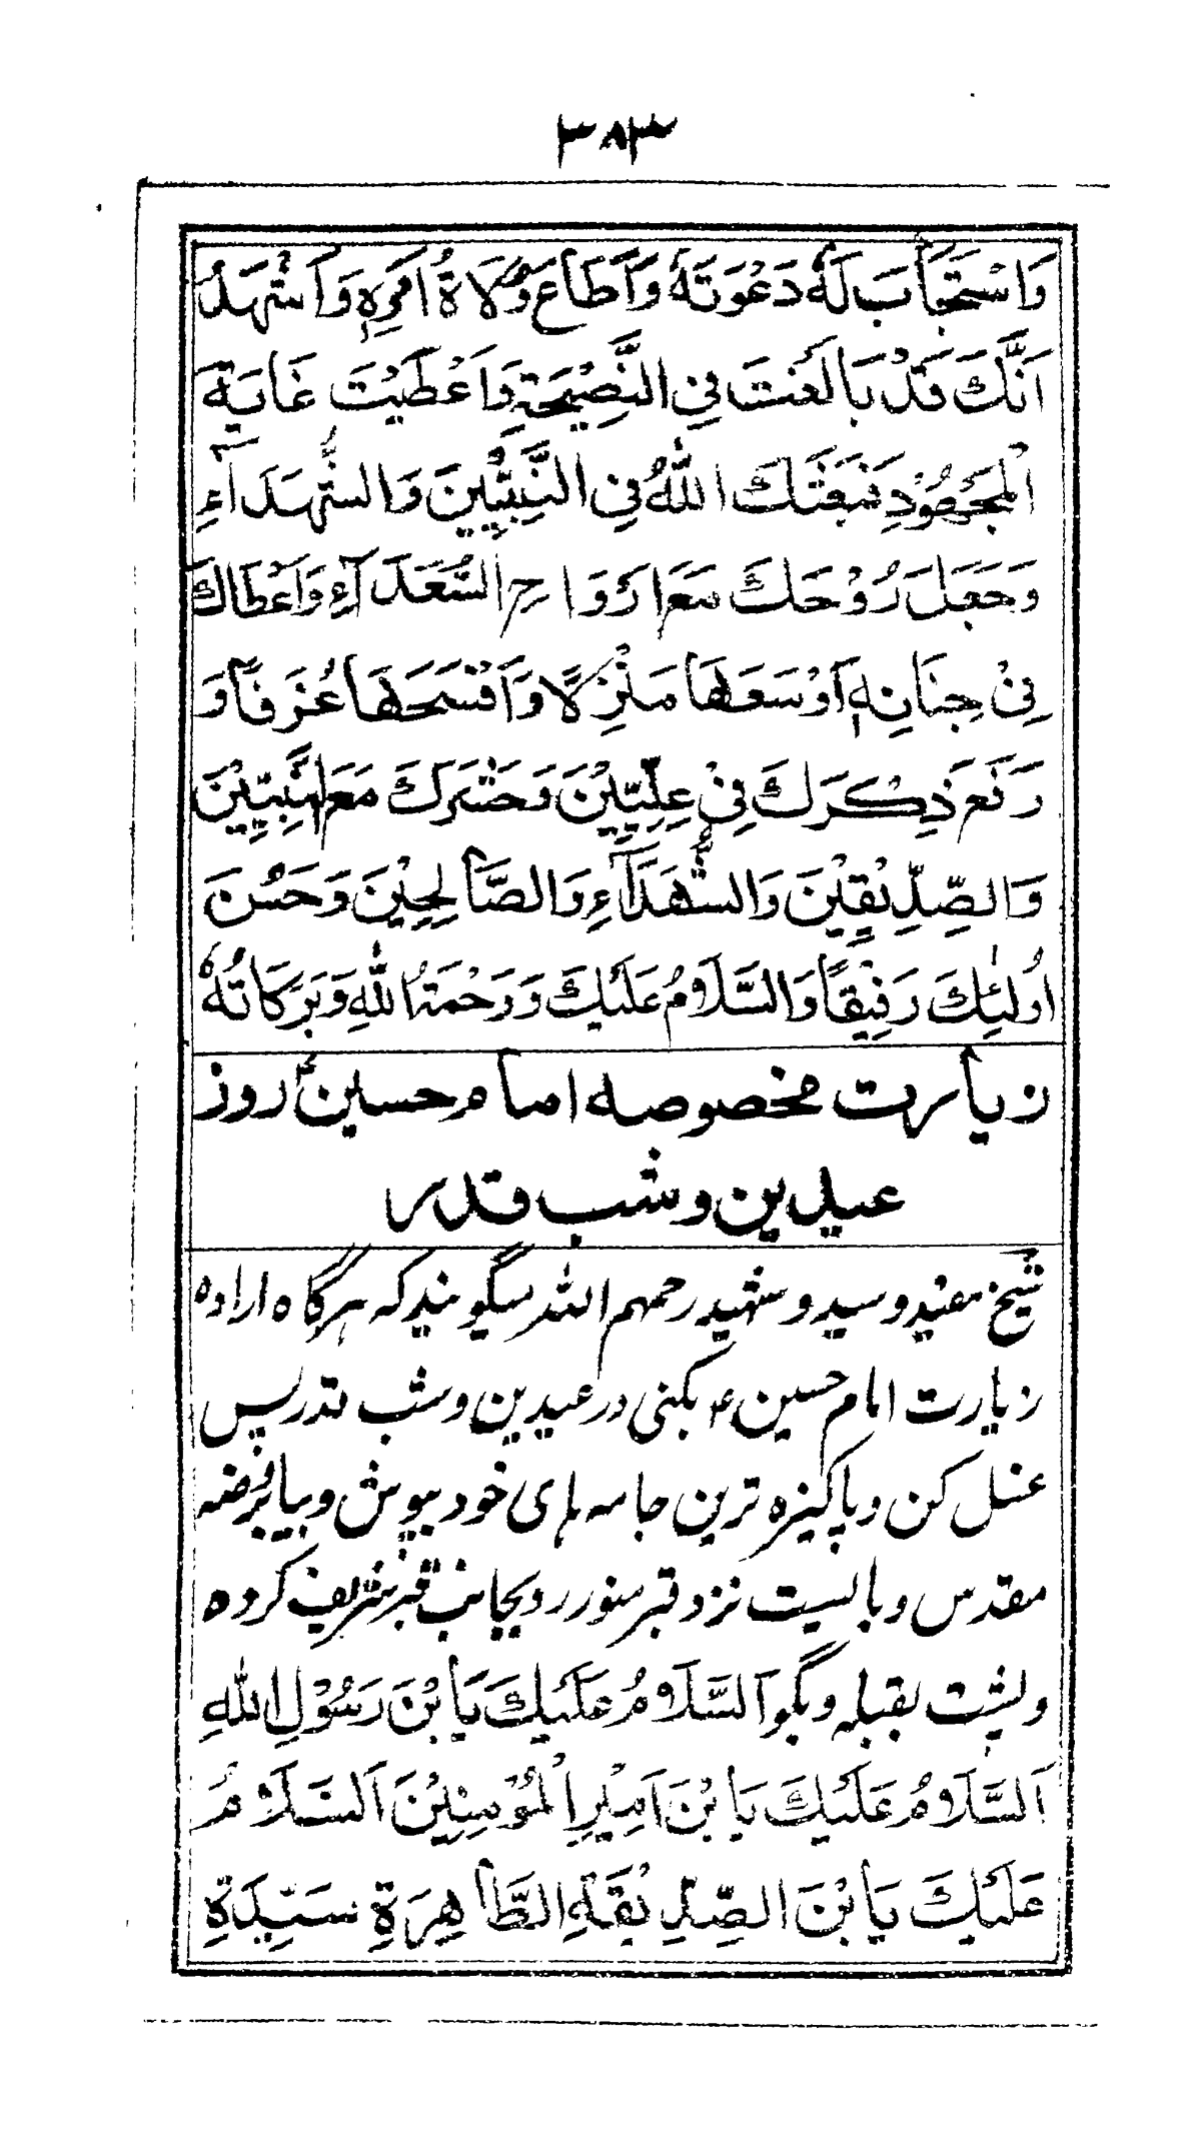 ۳۸۳
وَاسْتَجَابَ لَهُ دَعْوَتَهُ وَاَطَاعَ وُلَاةَ اَمْرِهٖ وَاَشْهَدُ
اَنَّكَ قَدْ بَالَغْتَ فِی النَّصِیْحَةِ وَاَعْطَیْتَ غَایَةَ
الْمَجْهُوْدِ فَبَعَثَكَ اللّٰهُ فِی النَّبِیِّیْنَ وَالشُّهَدَآءِ
وَجَعَلَ رُوْحَكَ مَعَ اَرْوَاحِ السُّعَدَآءِ وَاَعْطَاكَ
فِیْ جِنَانِهٖ اَوْسَعَهَا مَنْزِلًا وَاَفْسَحَهَا غُرَفًا وَ
رَفَعَ ذِكْرَكَ فِیْ عِلِّیِّیْنَ وَحَشَرَكَ مَعَ النَّبِیِّیْنَ
وَالصِّدِّیْقِیْنَ وَالشُّهَدَآءِ وَالصَّالِحِیْنَ وَحَسُنَ
اُولٰئِكَ رَفِیْقًا وَالسَّلَامُ عَلَیْكَ وَرَحْمَةُ اللّٰهِ وَبَرَكَاتُهُ
زیارت مخصوصہ امام حسینؑ روز
عیدین وشب قدر
شیخ مفید وسید وشہید رحمہم اللہ میگویند کہ ہرگاہ ارادہ
زیارت امام حسینؑ بکنی در عیدین وشب قدر پس
غسل کن وپاکیزہ ترین جامہ ہای خود بپوش وبیا بروضہ
مقدس وبایست نزد قبر منور رو بجانب قبر شریف کردہ
وپشت بقبلہ وبگو اَلسَّلَامُ عَلَیْكَ یَا بْنَ رَسُوْلِ اللّٰهِ
اَلسَّلَامُ عَلَیْكَ یَا بْنَ اَمِیْرِ الْمُؤْمِنِیْنَ اَلسَّلَامُ
عَلَیْكَ یَا بْنَ الصِّدِّیْقَةِ الطَّاهِرَةِ سَیِّدَةِ